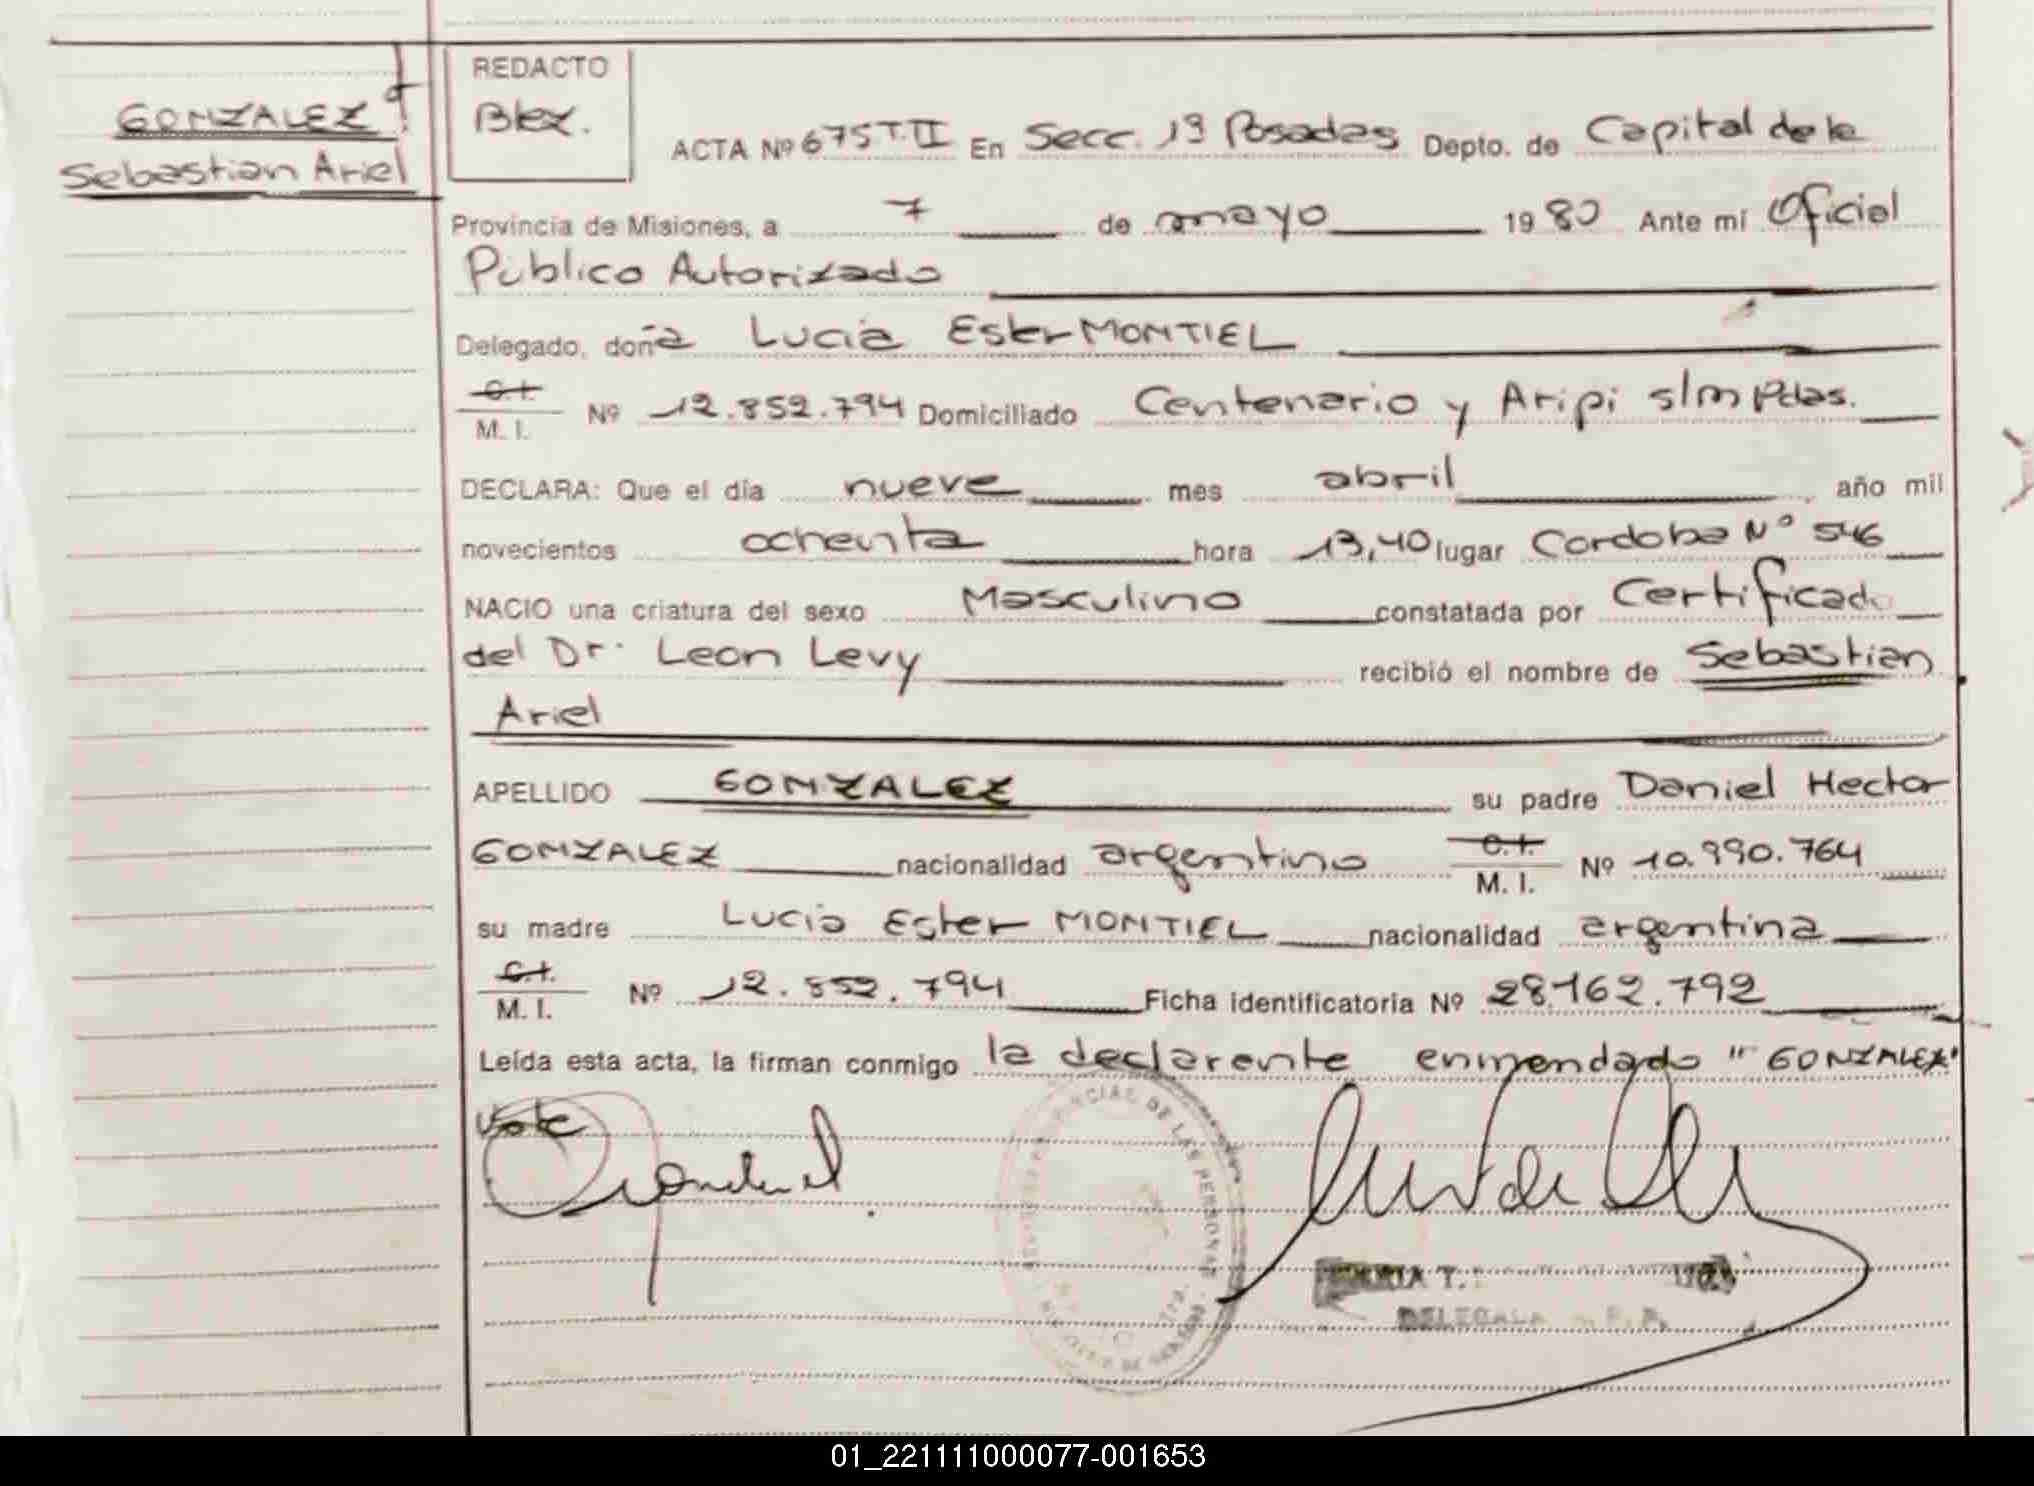 GONZALEZ
Sebastian Ariel
REDACTO
Blez.
ACTA Nº 675 T.II En Secc. 1ª Posadas Depto. de Capital de la
Provincia de Misiones, a 7 de mayo 1980 Ante mí Oficial
Público Autorizado
Delegado, doña Lucia Ester MONTIEL
C.I. M. I. Nº 12.852.794 Domiciliado Centenario y Aripi s/m Pdas.
DECLARA: Que el día nueve mes abril, año mil
novecientos ochenta hora 13,40 lugar Cordoba Nº 546
NACIO una criatura del sexo Masculino constatada por Certificado
del Dr. Leon Levy recibió el nombre de Sebastian
Ariel
APELLIDO GONZALEZ su padre Daniel Hector
GONZALEZ nacionalidad argentino C.I. M. I. Nº 10.990.764
su madre Lucia Ester MONTIEL nacionalidad argentina
C.I. M. I. Nº 12.852.794 Ficha identificatoria Nº 28.162.792
Leída esta acta, la firman conmigo la declarente enmendado "GONZALEZ"
Vale
DE LAS PERSONAS
01_221111000077-001653